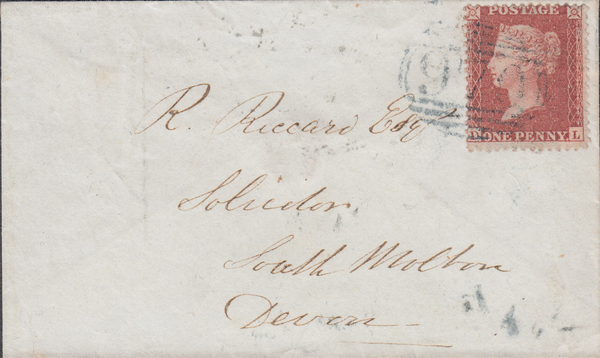 POSTAGE
ONE PENNY L
R. Riccard Esqr
Solicitor
South Molton
Devon